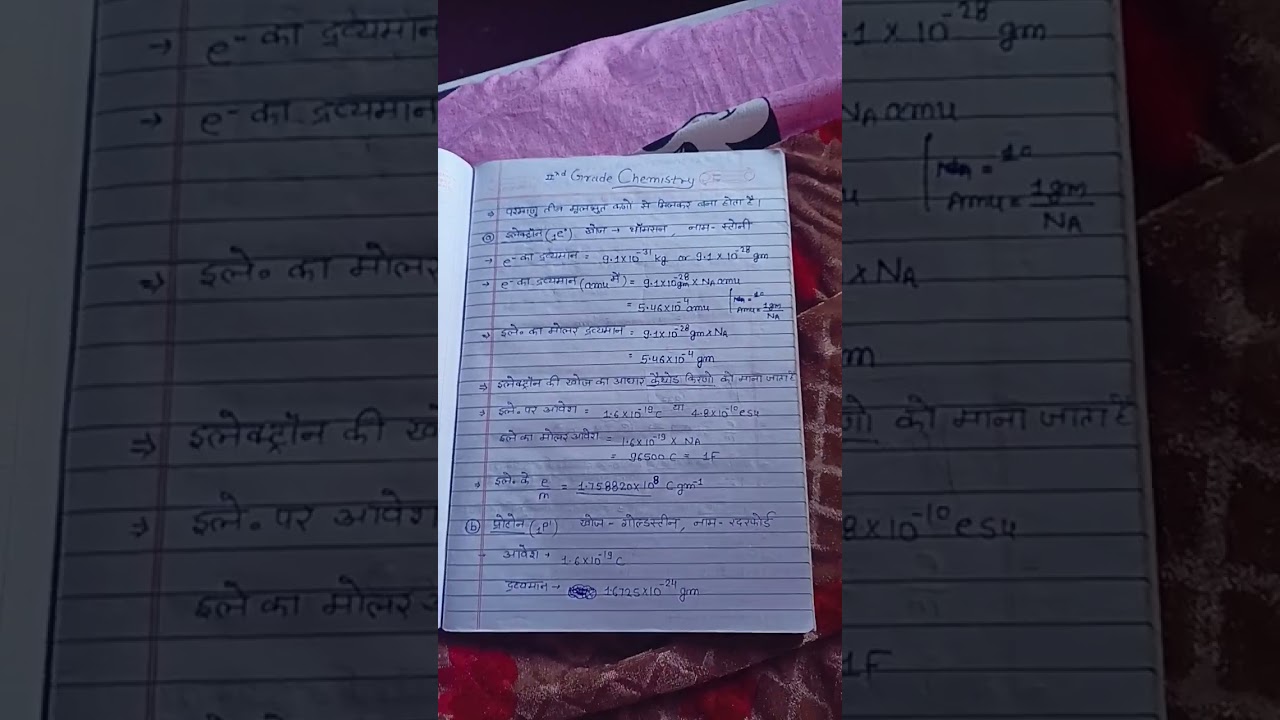 IInd Grade Chemistry
⇒ परमाणु तीन मूलभूत कणो से मिलकर बना होता है।
(a) इलेक्ट्रॉन (₋₁e⁰) खोज → थॉमसन, नाम - स्टोनी
→ e⁻ का द्रव्यमान = 9.1×10⁻³¹ kg or 9.1×10⁻²⁸ gm
→ e⁻ का द्रव्यमान (amu में) = 9.1×10⁻²⁸ gm × NA amu
= 5.46×10⁻⁴ amu
Amu = 1gm/NA
⇒ इले० का मोलर द्रव्यमान = 9.1×10⁻²⁸ gm × NA
= 5.46×10⁻⁴ gm
⇒ इलेक्ट्रॉन की खोज का आधार कैथोड किरणो को माना जाता है
⇒ इले० पर आवेश = 1.6×10⁻¹⁹ C या 4.8×10⁻¹⁰ esu
इले का मोलर आवेश = 1.6×10⁻¹⁹ × NA
= 96500 C = 1F
⇒ इले० के e/m = 1.758820×10⁸ C gm⁻¹
(b) प्रोटोन (₁p¹) खोज - गोल्डस्टीन, नाम - रदरफोर्ड
- आवेश → 1.6×10⁻¹⁹ C
द्रव्यमान → 1.6725×10⁻²⁴ gm